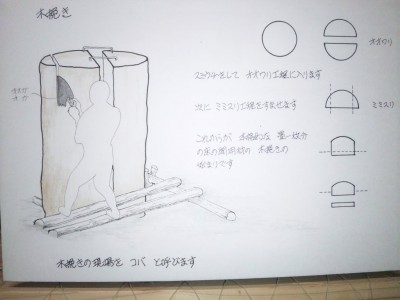 木挽き
オオワリ
スミウチをして オオワリ工程に入ります
次に ミミスリ工程をすませます
ミミスリ
これからが 本格的な 畳一枚分
の床の間用材の 木挽きの
始まりです
木挽きの現場を コバ と呼びます